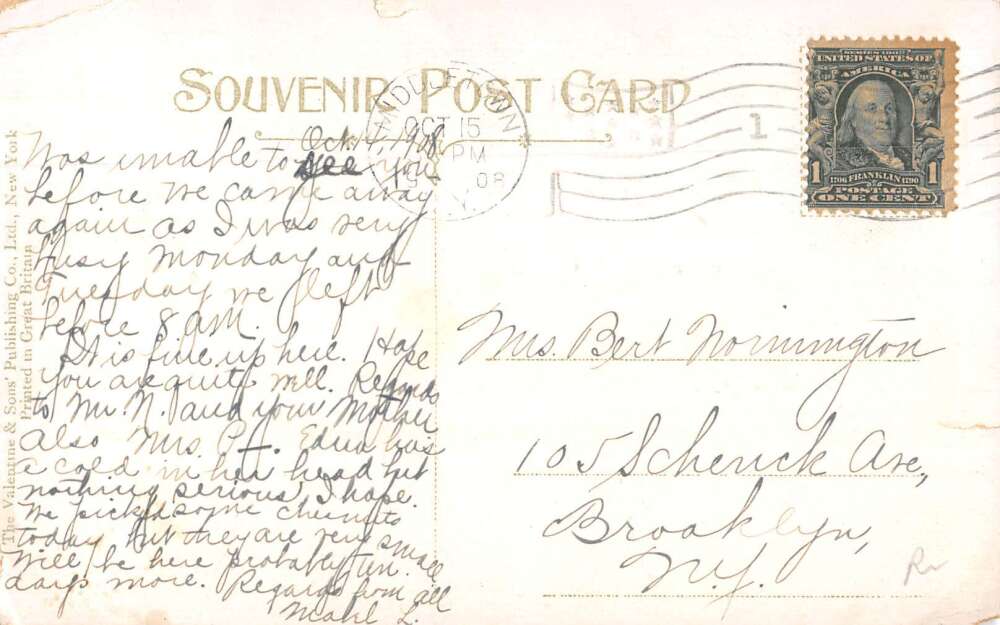 SOUVENIR POST CARD
MIDDLETOWN
OCT 15
PM
08
N.Y.
1
SERIES 1902
UNITED STATES OF
AMERICA
1706 FRANKLIN 1790
1 POSTAGE 1
ONE CENT
Oct. 14, 1908
Was unable to see you
before we came away
again as I was very
busy Monday and
Tuesday we left
before 8 a.m.
It is fine up here. Hope
you are quite well. Regards
to Mr. N. and your Mother
also Mrs. P. Edna has
a cold in her head but
nothing serious I hope.
We picked some chesnuts
today but they are very small
will be here probably ten
days more. Regards from all
Mabel L.
Mrs. Bert Normington
105 Schenck Ave,
Brooklyn,
N.Y.
(The Valentine & Sons' Publishing Co., Ltd., New York
Printed in Great Britain